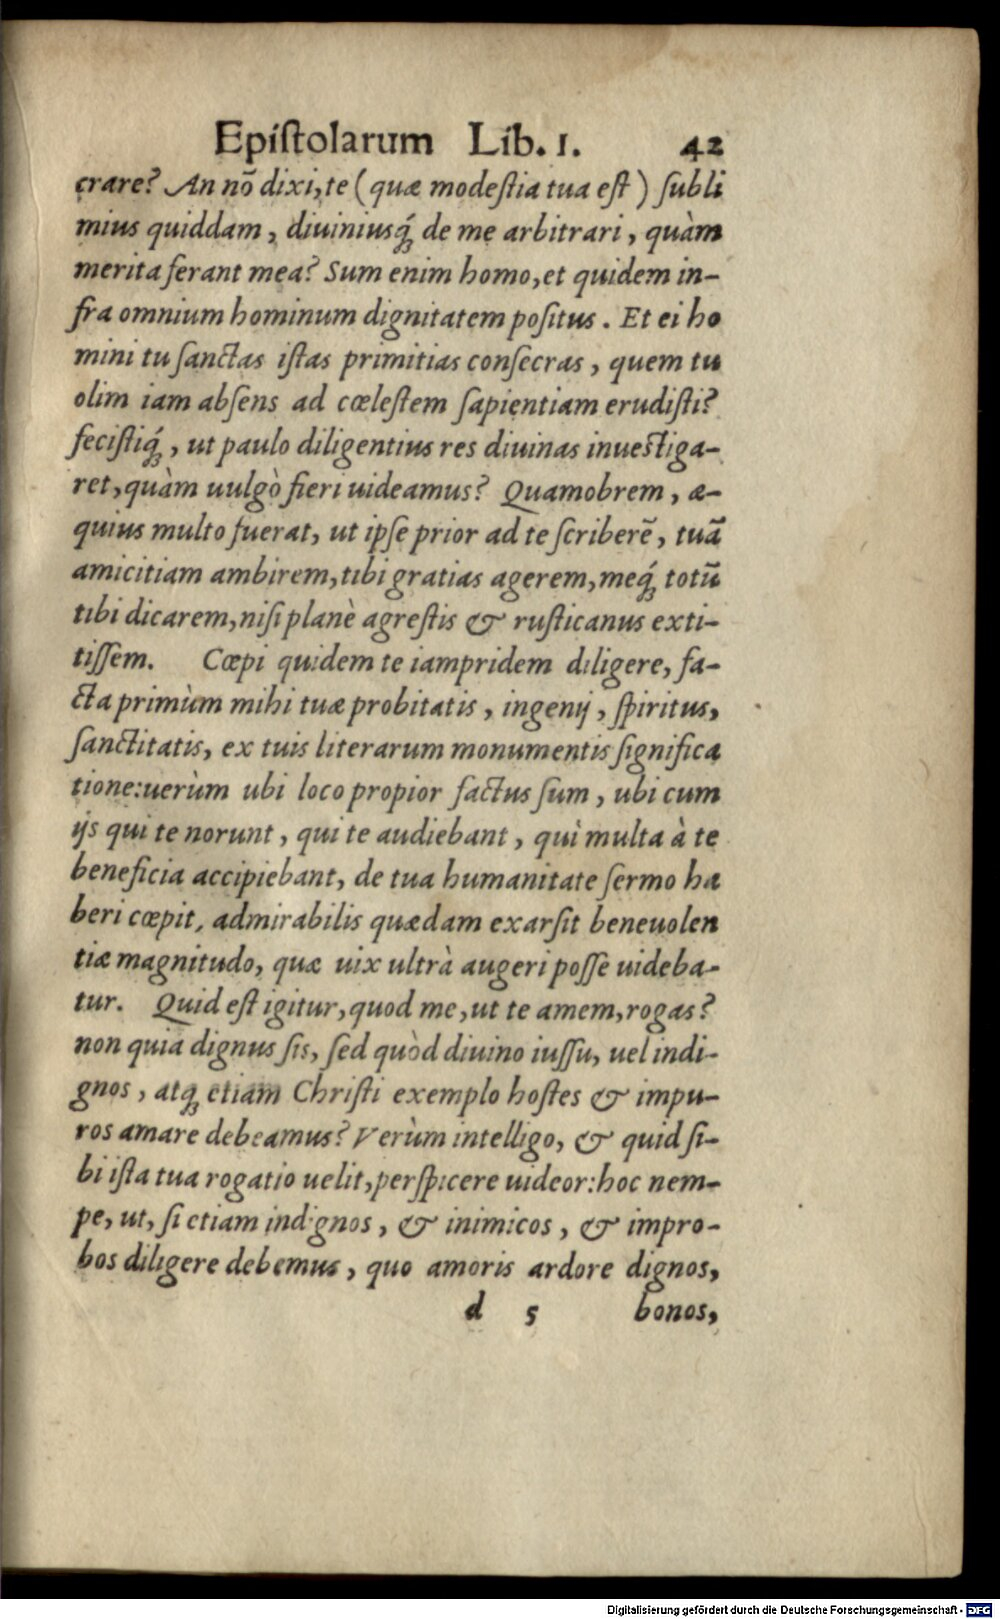 Epiſtolarum Lib. I. 42
crare? An nō dixi, te (quæ modeſtia tua eſt) ſubli
mius quiddam, diuiniusq́; de me arbitrari, quàm
merita ferant mea? Sum enim homo, et quidem in-
fra omnium hominum dignitatem poſitus. Et ei ho
mini tu ſanctas iſtas primitias conſecras, quem tu
olim iam abſens ad cœleſtem ſapientiam erudiſti?
feciſtiq́;, ut paulo diligentius res diuinas inueſtiga-
ret, quàm uulgò fieri uideamus? Quamobrem, æ-
quius multo fuerat, ut ipſe prior ad te ſcriberē, tuā
amicitiam ambirem, tibi gratias agerem, meq́; totū
tibi dicarem, niſi planè agreſtis & ruſticanus exti-
tiſſem. Cœpi quidem te iampridem diligere, fa-
cta primùm mihi tuæ probitatis, ingenij, ſpiritus,
ſanctitatis, ex tuis literarum monumentis ſignifica
tione: uerùm ubi loco propior factus ſum, ubi cum
ijs qui te norunt, qui te audiebant, quì multa à te
beneficia accipiebant, de tua humanitate ſermo ha
beri cœpit, admirabilis quædam exarſit beneuolen
tiæ magnitudo, quæ uix ultrà augeri poſſe uideba-
tur. Quid eſt igitur, quod me, ut te amem, rogas?
non quia dignus ſis, ſed quòd diuino iuſſu, uel indi-
gnos, atq; etiam Chriſti exemplo hoſtes & impu-
ros amare debeamus? Verùm intelligo, & quid ſi-
bi iſta tua rogatio uelit, perſpicere uideor: hoc nem-
pe, ut, ſi etiam indignos, & inimicos, & impro-
bos diligere debemus, quo amoris ardore dignos,
d 5 bonos,
Digitalisierung gefördert durch die Deutsche Forschungsgemeinschaft - DFG